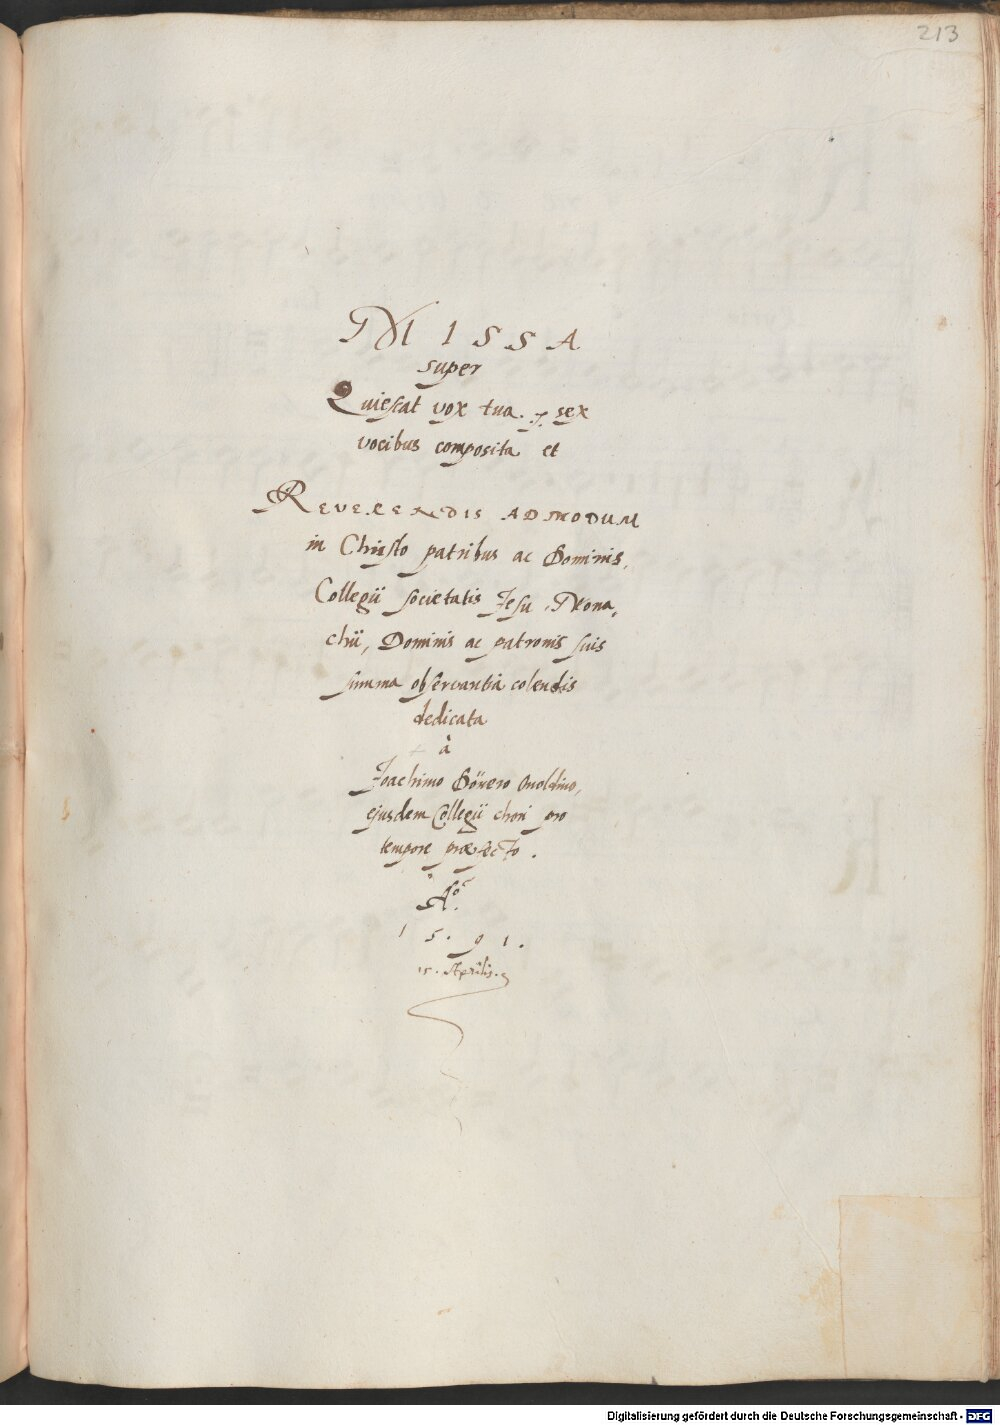 213
MISSA
super
Quiescat vox tua. sex
vocibus composita et
REVERENDIS ADMODUM
in Christo patribus ac Dominis,
Collegij societatis Jesu, Mona,
chij, Dominis ac patronis suis
summa observantia colendis
dedicata
à
Joachimo Onoldino,
ejusdem Collegij chori pro
tempore præfecto.
Aº.
1 5. 9 1.
15. Aprilis.
Digitalisierung gefördert durch die Deutsche Forschungsgemeinschaft - DFG